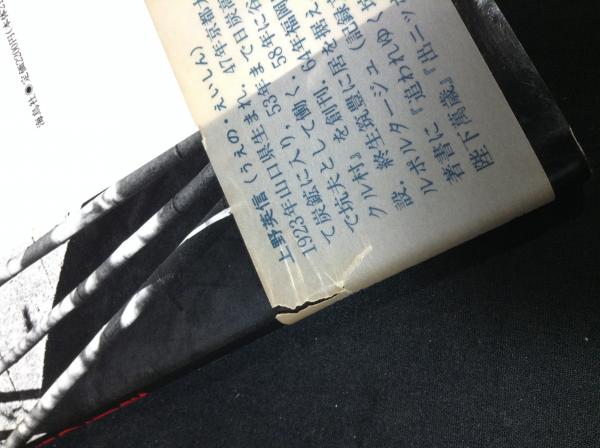 海鳥社●定価2200円(本体2
上野英信(うえの・えいしん)
1923年山口県生まれ. 47年京都
て炭鉱に入り, 53年まで日炭高
で坑夫として働く. 58年に谷
クル村』を創刊. 64年福岡
設. 終生筑豊に居を据え
ルポルタージュ(記録
著書に『追われゆく
陛下萬歳』『出ニッ